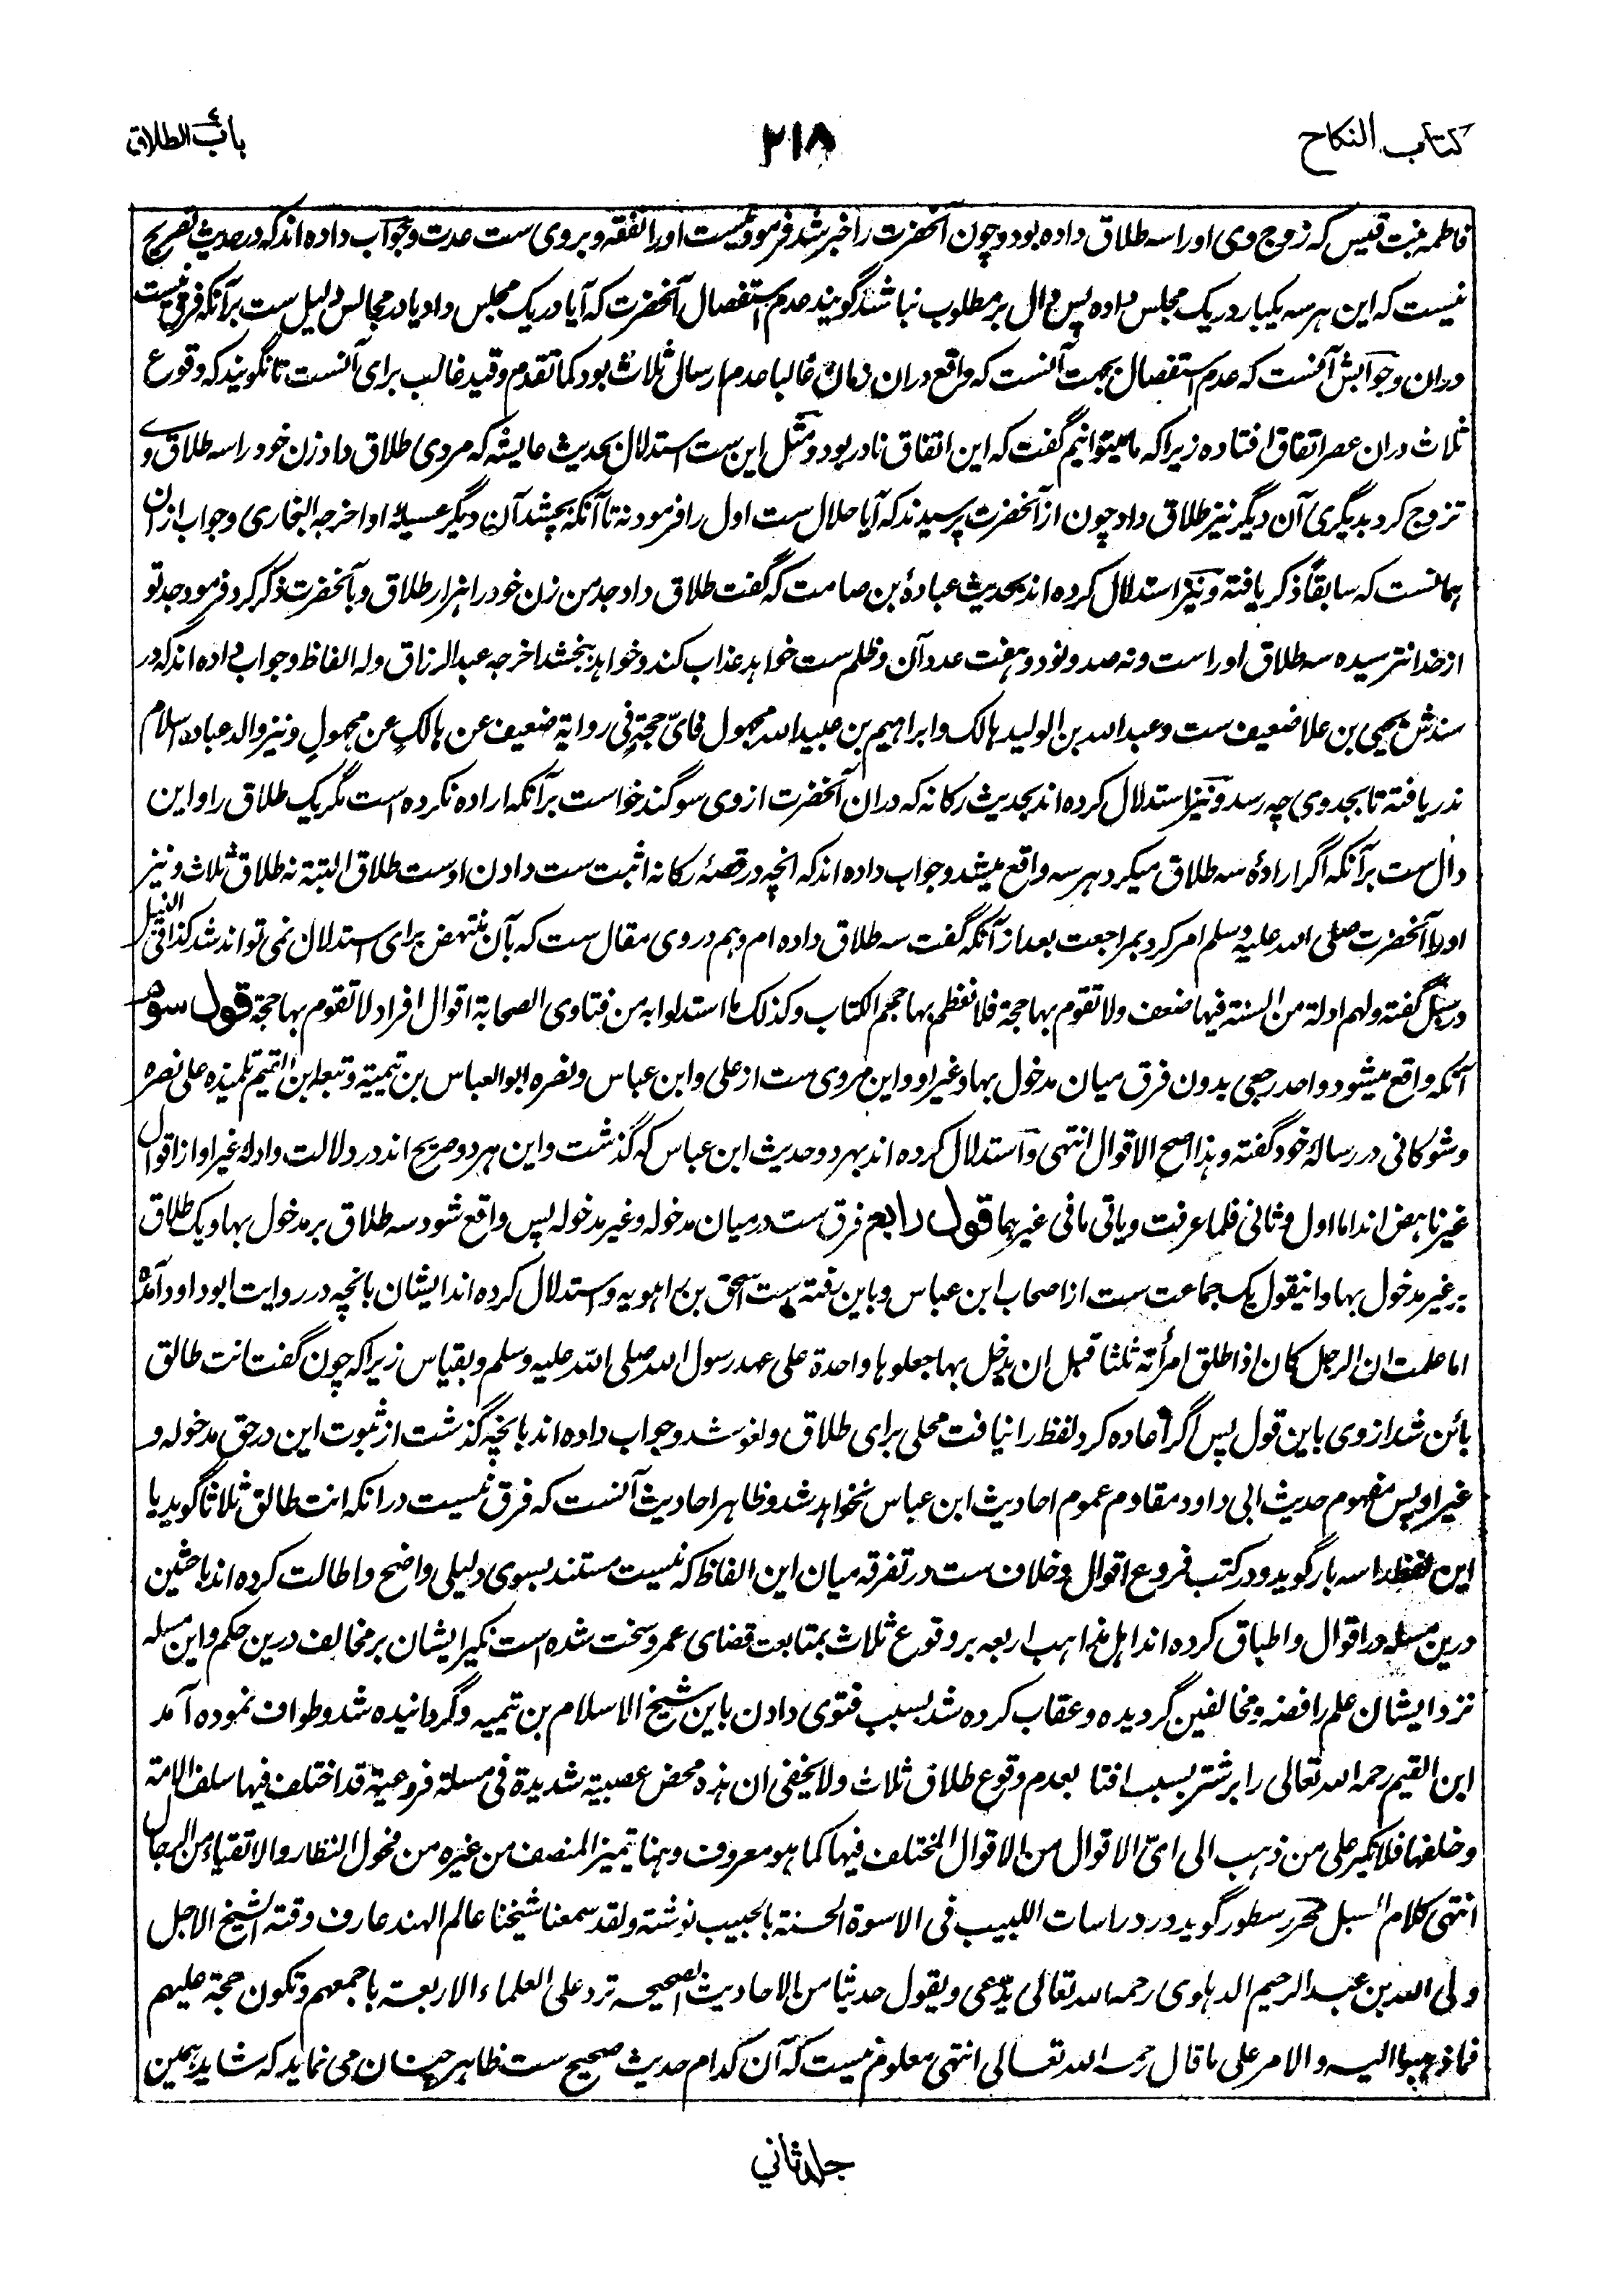 كتاب النكاح
٢١٨
باب الطلاق
فاطمه بنت قيس كه زوج وى اورا سه طلاق داده بود و چون آنحضرت را خبر شد فرمود نيست اورا نفقه و بروى ست عدت و جواب داده اند كه در حديث تصريح
نيست كه اين هر سه يكبار در يك مجلس داده پس دال بر مطلوب نباشد گويند عدم استفصال آنحضرت كه آيا در يك مجلس داد يا در مجالس دليل ست برآنكه فرقى نيست
دران و جوابش آنست كه عدم استفصال بجهت آنست كه واقع دران زمان غالبا عدم ارسال ثلاث بود كما تقدم و قيد غالب براى آنست تا نگويند كه وقوع
ثلاث دران عصر اتفاق افتاده زيرا كه ما ميتوانيم گفت كه اين اتفاق نادر بود و مثل اين ست استدلال بحديث عايشه كه مردى طلاق داد زن خود را سه طلاق و وى
تزوج كرد بديگرى آن ديگر نيز طلاق داد چون از آنحضرت پرسيدند كه آيا حلال ست اول را فرمود نه تا آنكه بچشد آن ديگر عسيله او اخرجه البخارى و جواب ازان
همانست كه سابقاً ذكر يافته و نيز استدلال كرده اند بحديث عبادۀ بن صامت كه گفت طلاق داد جد من زن خود را هزار طلاق و بآنحضرت ذكر كرد فرمود جد تو
از خدا نترسيده سه طلاق اوراست و نه صد و نود و هفت عدوان و ظلم ست خواهد عذاب كند و خواهد ببخشد اخرجه عبد الرزاق وله الفاظ و جواب داده اند كه در
سندش يحيى بن علا ضعيف ست و عبد الله بن الوليد هالك و ابراهيم بن عبيد الله مجهول فاىّ حجةٍ فى رواية ضعيف عن هالكٍ عن مجهولٍ و نيز والد عباده اسلام
ندريافته تا بجد وى چه رسد و نيز استدلال كرده اند بحديث ركانه كه دران آنحضرت از وى سوگند خواست برآنكه اراده نكرده است مگر يك طلاق را و اين
دال ست برآنكه اگر ارادۀ سه طلاق ميكرد هر سه واقع ميشد و جواب داده اند كه انچه در قصۀ ركانه اثبت ست دادن اوست طلاق البتة نه طلاق ثلاث و نيز
اورا آنحضرت صلى الله عليه وسلم امر كرد بمراجعت بعد از آنكه گفت سه طلاق داده ام و هم در وى مقال ست كه بآن منتهض براى استدلال نمى تواند شد كذا فى النيل
در سبل گفته ولهم ادلة من السنة فيها ضعف ولا تقوم بها حجة فلا نعظم بها حجم الكتاب وكذلك ما استدلوا به من فتاوى الصحابة اقوال افراد لا تقوم بها حجة قول سوم
آنكه واقع ميشود واحد رجعى بدون فرق ميان مدخول بها و غير او و اين مروى ست از على و ابن عباس و نصره ابو العباس بن تيمية و تبعه ابن القيم تلميذه على نصره
و شوكانى در رسالۀ خود گفته وهذا اصح الاقوال انتهى و استدلال كرده اند بهر دو حديث ابن عباس كه گذشت و اين هر دو صريح اند در دلالت و ادلۀ غير او از اقوال
غير ناهض اند اما اول و ثانى فلما عرفت و ياتى ما فى غيرهما قول رابع فرق ست درميان مدخوله و غير مدخوله پس واقع شود سه طلاق بر مدخول بها و يك طلاق
بر غير مدخول بها و اينقول يك جماعت ست از اصحاب ابن عباس و باين رفته ست اسحق بن راهويه و استدلال كرده اند ايشان بانچه در روايت ابو داود آمده
اما علمت ان الرجل كان اذا طلق امرأته ثلثا قبل ان يدخل بها جعلوها واحدة على عهد رسول الله صلى الله عليه وسلم و بقياس زيرا كه چون گفت انت طالق
بائن شد از وى باين قول پس اگر اعاده كرد لفظ را نيافت محلى براى طلاق و لغو شد و جواب داده اند بانچه گذشت از ثبوت اين در حق مدخوله و
غير او پس مفهوم حديث ابى داود مقاوم عموم احاديث ابن عباس نخواهد شد و ظاهر احاديث آنست كه فرق نيست درانكه انت طالق ثلاثا گويد يا
اين لفظ را سه بار گويد و در كتب فروع اقوال و خلاف ست در تفرقه ميان اين الفاظ كه نيست مستند بسوى دليلى واضح و اطالت كرده اند باحثين
درين مسله در اقوال و اطباق كرده اند اهل مذاهب اربعه بر وقوع ثلاث بمتابعت قضاى عمر و سخت شده است نكير ايشان بر مخالف درين حكم و اين مسله
نزد ايشان علم رافضه و مخالفين گرديده و عقاب كرده شد بسبب فتوى دادن باين شيخ الاسلام بن تيميه و گردانيده شد و طواف نموده آمد
ابن القيم رحمه الله تعالى را بر شتر بسبب افتا بعدم وقوع طلاق ثلاث ولا يخفى ان هذه محض عصبية شديدة فى مسلة فروعية قد اختلف فيها سلف الامة
وخلفها فلا نكير على من ذهب الى اىّ الاقوال من الاقوال المختلف فيها كما هو معروف وهنا يتميز المنصف من غيره من فحول النظار والاتقياء من الرجال
انتهى كلام السبل محرر سطور گويد در دراسات اللبيب فى الاسوة الحسنة بالحبيب نوشته ولقد سمعنا شيخنا عالم الهند عارف وقته الشيخ الاجل
ولى الله بن عبد الرحيم الدهلوى رحمه الله تعالى يدّعى ويقول حديثا من الاحاديث الصحيحه ترد على العلماء الاربعة باجمعهم وتكون حجة عليهم
فما ذهبوا اليه والامر على ما قال رحمه الله تعالى انتهى معلوم نيست كه آن كدام حديث صحيح ست ظاهر چنان مى نمايد كه شايد همين
جلد ثاني